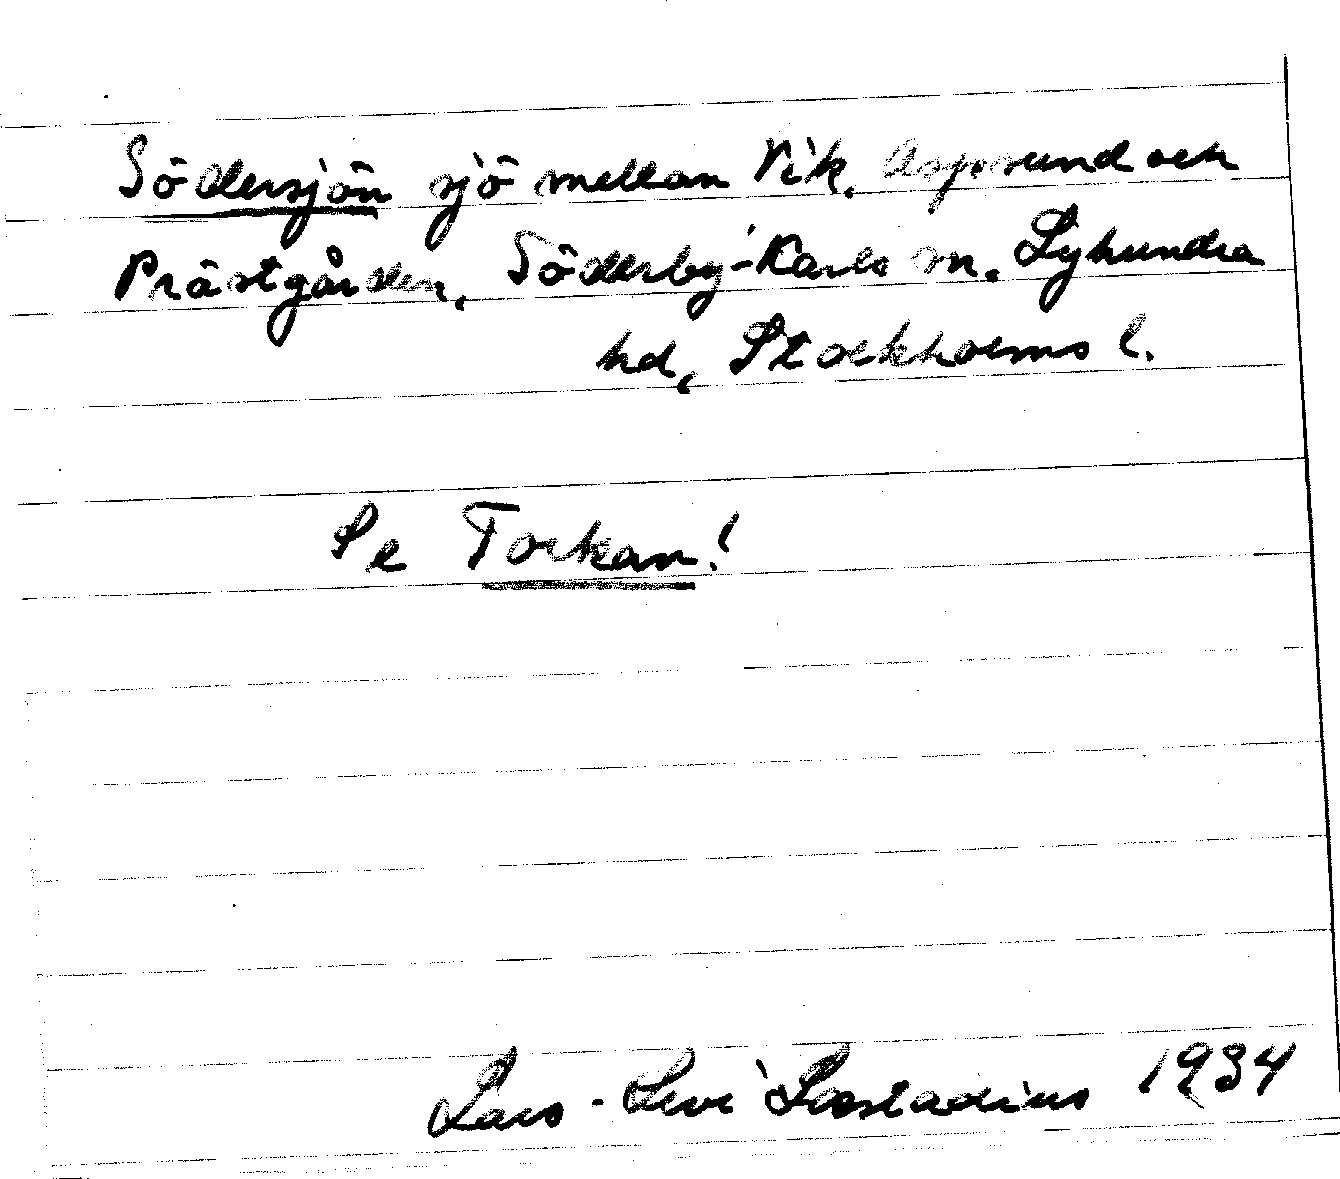 Södersjön sjö mellan Vik, Aspsund och
Prästgården, Söderby-Karls sn. Lyhundra
hd, Stockholms l.
Se Torkan!
Lars-Levi Læstadius 1934